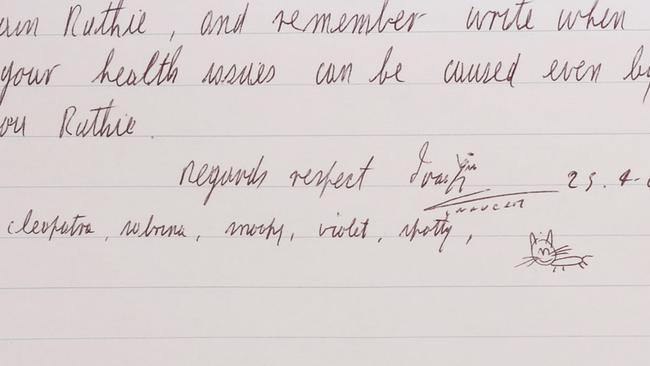 Ruthie, and remember write when
your health issues can be caused even
Ruthie.
Regards respect
cleopatra, sabrina, violet, spotty,